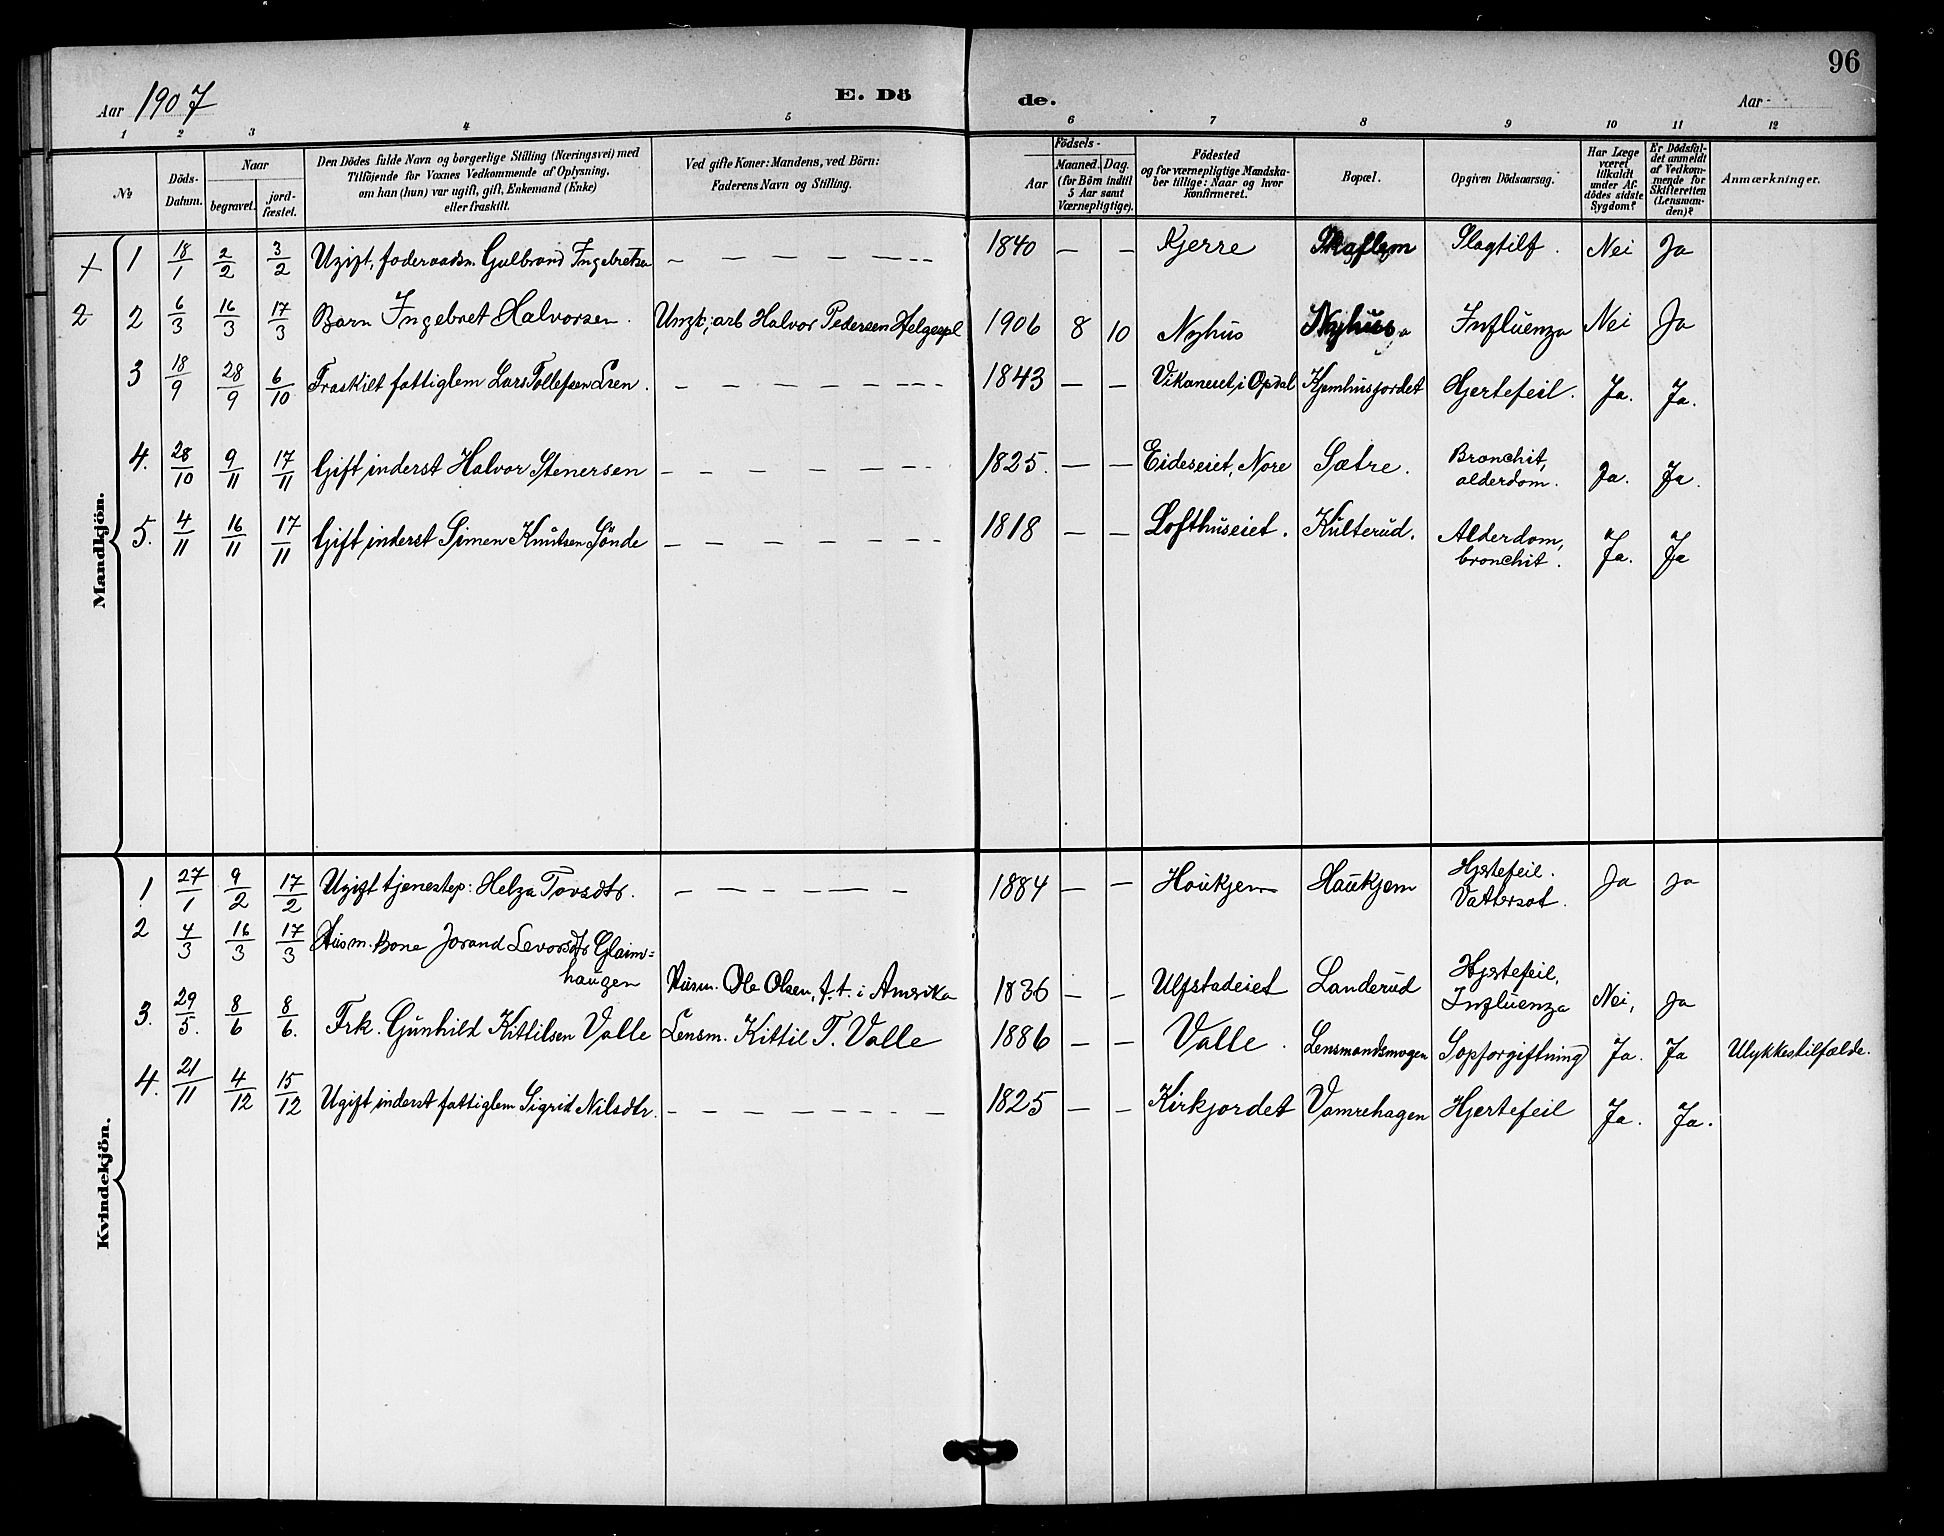 96
Aar 1907 E. Dö de. Aar
1 2 3 4 5 6 7 8 9 10 11 12
№ Döds-Datum. Naar begravet. jordfæstet. Den Dödes fulde Navn og borgerlige Stilling (Næringsvei) med Tilföjende för Voxnes Vedkommende af Oplysning, om han (hun) var ugift, gift, Enkemand (Enke) eller fraskilt. Ved gifte Koner: Mandens, ved Börn: Faderens Navn og Stilling. Födsels- Aar Maaned. Dag. (for Börn indtil 5 Aar samt Værnepligtige). Födested og for værnepligtige Mandskaber tillige: Naar og hvor konfirmeret. Bopæl. Opgiven Dödsaarsag. Har Læge været tilkaldt under Afdödes sidste Sygdom? Er Dödsfaldet anmeldt af Vedkommende for Skifteretten (Lensmanden)? Anmærkninger.
Mandkjön.
+ 1 18/1 2/2 3/2 Ugift, foderaadsm. Gulbrand Ingebretsen — — — — — 1840 — — Kjerre Slagtilf. Nei Ja
2 2 6/3 16/3 17/3 Barn Ingebret Halvorsen. Ungk; arb Halvor Pedersen Helgespl 1906 8 10 Nyhus Nyhus Influenza Nei Ja
3 18/9 28/9 6/10 Fraskilt fattiglem Lars Tollefsen Lien. — — — — — 1843 — — Vikaneiet, i Opdal Kjemhusjordet Hjertefeil. Ja. Ja.
4. 28/10 9/11 17/11 Gift, inderst Halvor Stenersen — — — — — 1825. — — Eideseiet, Nore Sætre. Bronchit, alderdom. Ja. Ja.
5. 4/11 16/11 17/11 Gift, inderst Simen Knutsen Sönde — — — — — 1818 — — Lofthuseiet. Kulterud. Alderdom, bronchit. Ja. Ja
Kvindekjön.
1 27/1 9/2 17/2 Ugift tjenestep: Helga Tovsdtr. — — — — — 1884 — — Haukjem Haukjem Hjertefeil. Vattersot. Ja Ja
2 4/3 16/3 17/3 Husm. Kone Jorand Levorsdtr Glaim=
haugen Husm. Ole Olsen, f. t. i Amerika 1836 — — Ulfstadeiet Landerud Hjertefeil, Influenza Nei, Ja
3. 29/5. 8/6 8/6. Frk. Gunhild Kittilsen Valle Lensm. Kittil T. Valle 1886 — — Valle. Lensmandsmogen Sopforgiftning Ja. Ja Ulykkestilfælde.
4. 21/11 4/12 15/12 Ugift, inderst fattiglem Sigrid Nilsdtr. — — — — — 1825 — — Kirkjordet Vamrehagen Hjertefeil Ja. Ja.